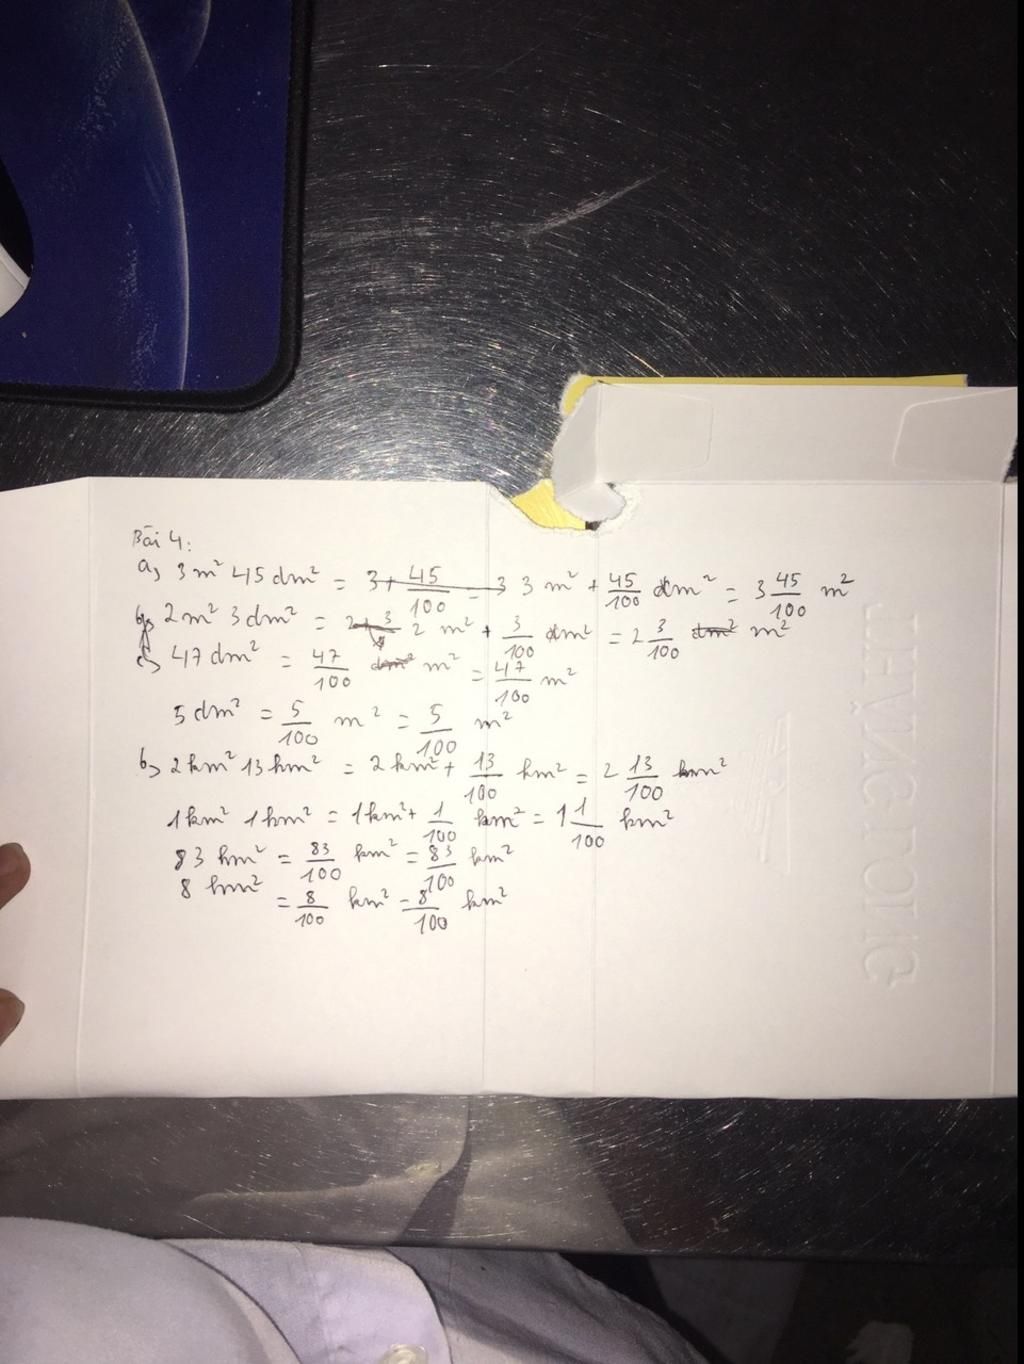 Bài 4:
a, 3m² 45dm² = 3 + 45/100 = 3 3 m² + 45/100 dm² = 3 45/100 m²
b, 2m² 3dm² = 2 + 3 2 m² + 3/100 dm² = 2 3/100 dm² m²
c, 47 dm² = 47/100 dm² m² = 47/100 m²
5 dm² = 5/100 m² = 5/100 m²
b, 2km² 13hm² = 2km² + 13/100 km² = 2 13/100 km²
1km² 1hm² = 1km² + 1/100 km² = 1 1/100 km²
83 hm² = 83/100 km² = 83/100 km²
8 hm² = 8/100 km² = 8/100 km²